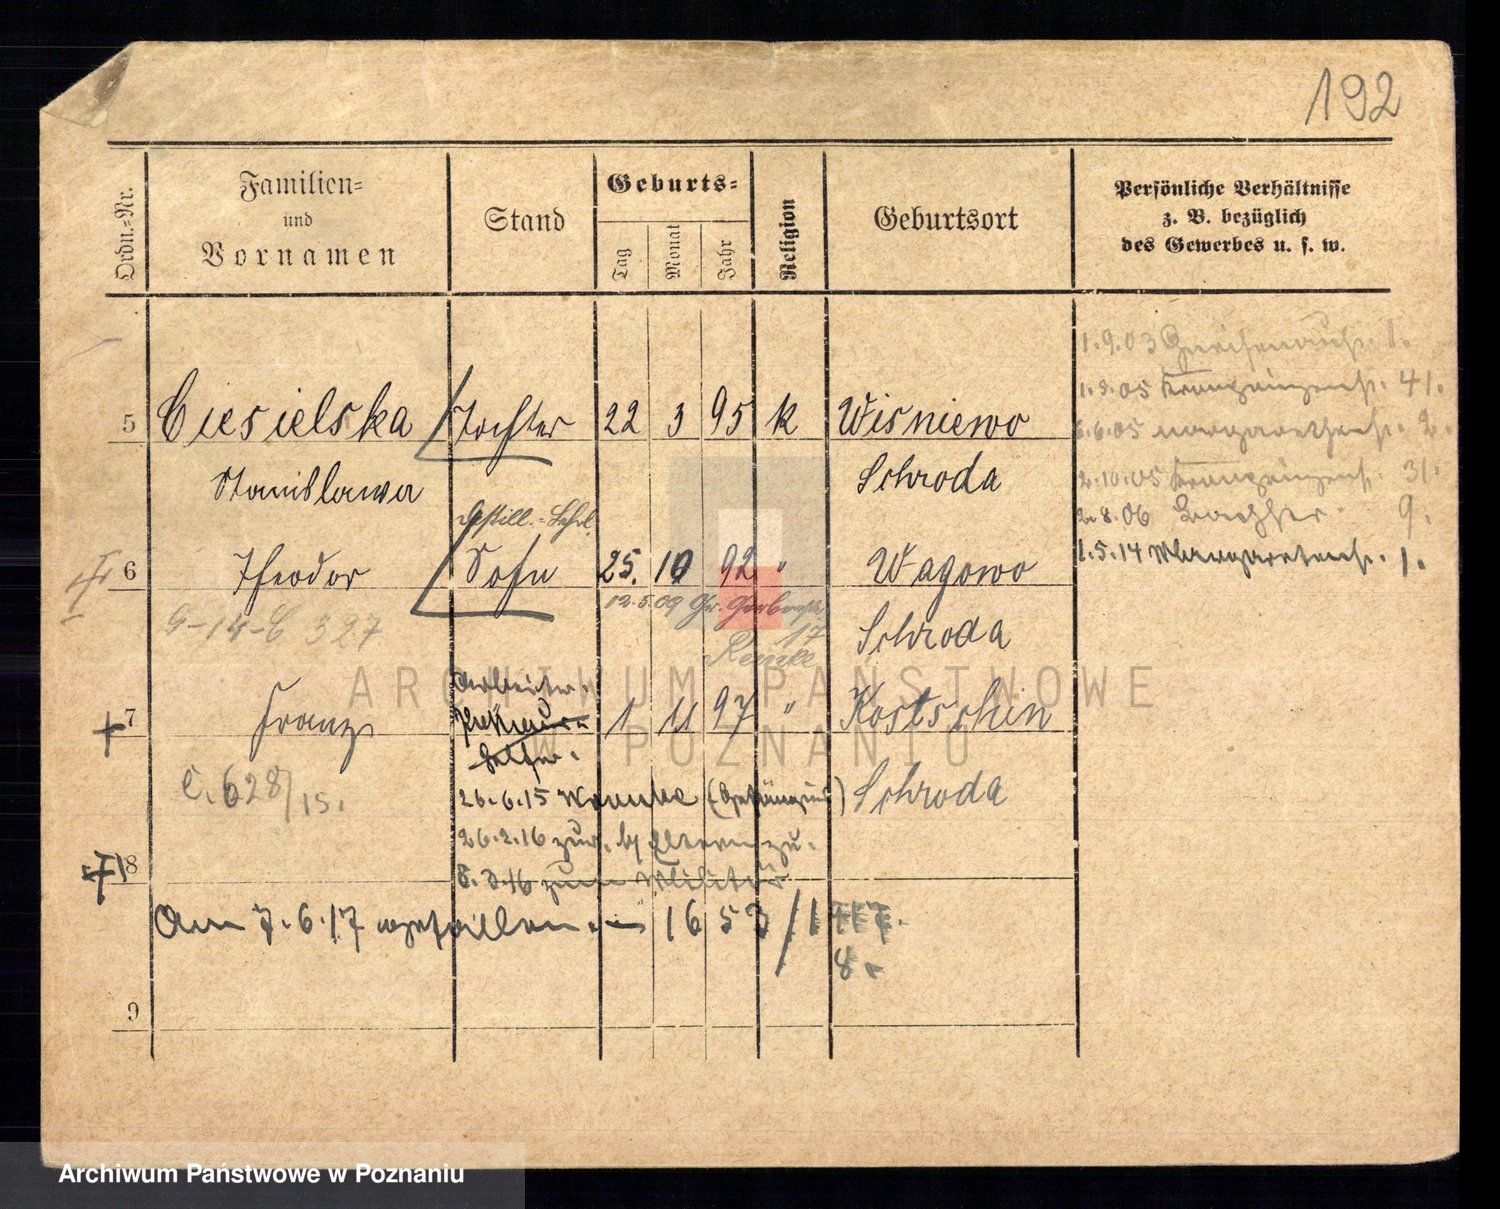 192
Ordn.=Nr.
Familien=
und
Vornamen
Stand
Geburts=
Tag
Monat
Jahr
Religion
Geburtsort
Persönliche Verhältnisse
z. B. bezüglich
des Gewerbes u. s. w.
1.9.03 1.
5 Ciesielska Tochter 22 3 95 k Wisniewo
Stanislawa Schroda
1.5.05 41.
6.6.05 Margarethenst. 2.
2.10.05 31.
2.8.06 9.
1.5.14 Margaretenst. 1.
Destill.=Lehrl.
6 Theodor Sohn 25. 10 92 " Wagowo
12.5.09 Gr. Gerberstr.
17
Schroda
G-14-C 327
Arbeiter.
7 Franz 1 11 97 " Kostschin
Helfer.
C. 628/15.
26.6.15 Wronke (Gefängnis) Schroda
26.2.16 zur. by Eltern zu.
8
8.3.16 zum Militär
Am 7.6.17 gefallen. - 1653/1 717.
8.
9
ARCHIWUM PAŃSTWOWE
W POZNANIU
Archiwum Państwowe w Poznaniu